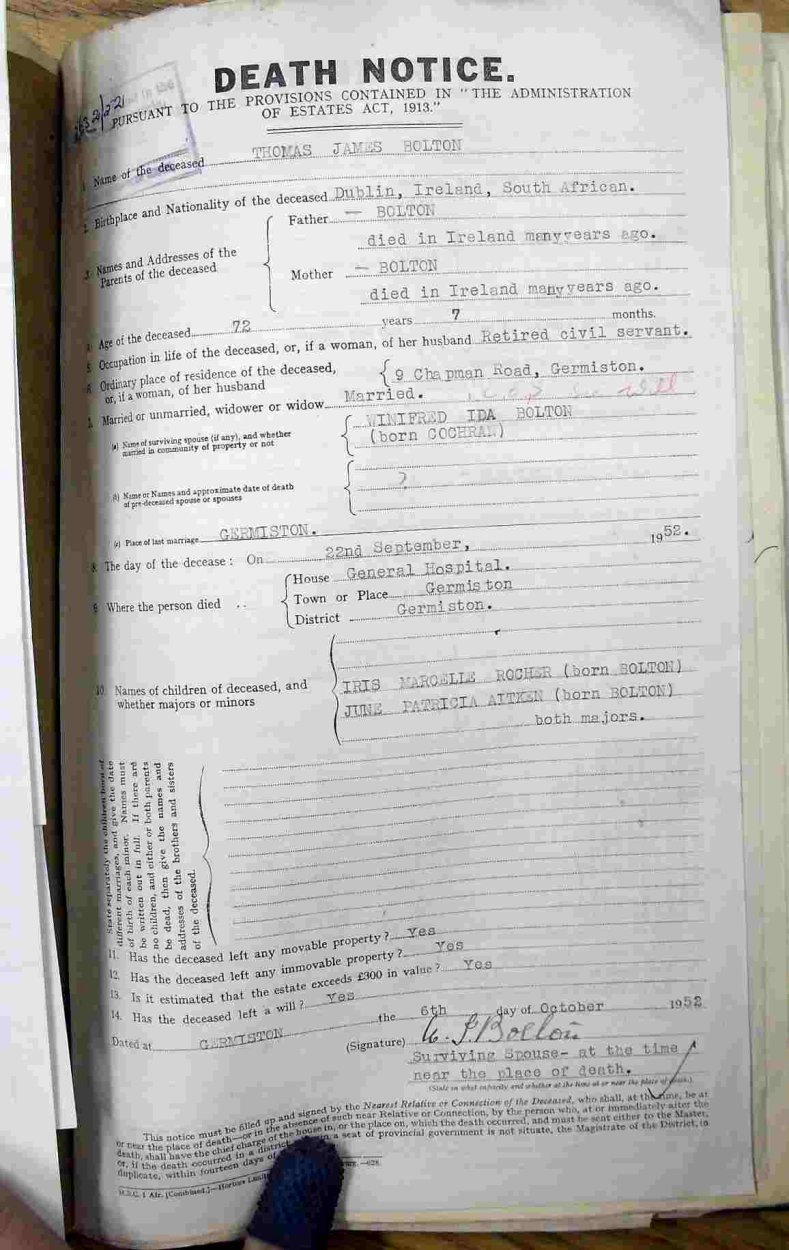 DEATH NOTICE.
PURSUANT TO THE PROVISIONS CONTAINED IN "THE ADMINISTRATION
OF ESTATES ACT, 1913."
1. Name of the deceased THOMAS JAMES BOLTON
2. Birthplace and Nationality of the deceased Dublin, Ireland, South African.
3. Names and Addresses of the Parents of the deceased
Father — BOLTON
died in Ireland many years ago.
Mother — BOLTON
died in Ireland many years ago.
4. Age of the deceased 72 years 7 months.
5. Occupation in life of the deceased, or, if a woman, of her husband Retired civil servant.
6. Ordinary place of residence of the deceased,
or, if a woman, of her husband
9 Chapman Road, Germiston.
7. Married or unmarried, widower or widow Married.
(a) Name of surviving spouse (if any), and whether
married in community of property or not
WINIFRED IDA BOLTON
(born COCHRAN)
(b) Name or Names and approximate date of death
of pre-deceased spouse or spouses
?
(c) Place of last marriage GERMISTON.
8. The day of the decease : On 22nd September, 1952.
9. Where the person died ..
House General Hospital.
Town or Place Germiston
District Germiston.
10. Names of children of deceased, and
whether majors or minors
IRIS MARCELLE ROCHER (born BOLTON)
JUNE PATRICIA AITKEN (born BOLTON)
both majors.
State separately the children born of
different marriages, and give the date
of birth of each minor. Names must
be written out in full. If there are
no children, and either or both parents
be dead, then give the names and
addresses of the brothers and sisters
of the deceased.
11. Has the deceased left any movable property ? Yes
12. Has the deceased left any immovable property ? Yes
13. Is it estimated that the estate exceeds £300 in value ? Yes
14. Has the deceased left a will ? Yes
Dated at GERMISTON the 6th day of October 1952
(Signature) Bolton
Surviving Spouse- at the time
near the place of death.
(State in what capacity and whether at the time at or near the place of death.)
This notice must be filled up and signed by the Nearest Relative or Connection of the Deceased, who shall, at the time, be at
or near the place of death—or in the absence of such near Relative or Connection, by the person who, at or immediately after the
death, shall have the chief charge of the house in, or the place on, which the death occurred, and must be sent either to the Master,
or, if the death occurred in a district a seat of provincial government is not situate, the Magistrate of the District, in
duplicate, within fourteen days of